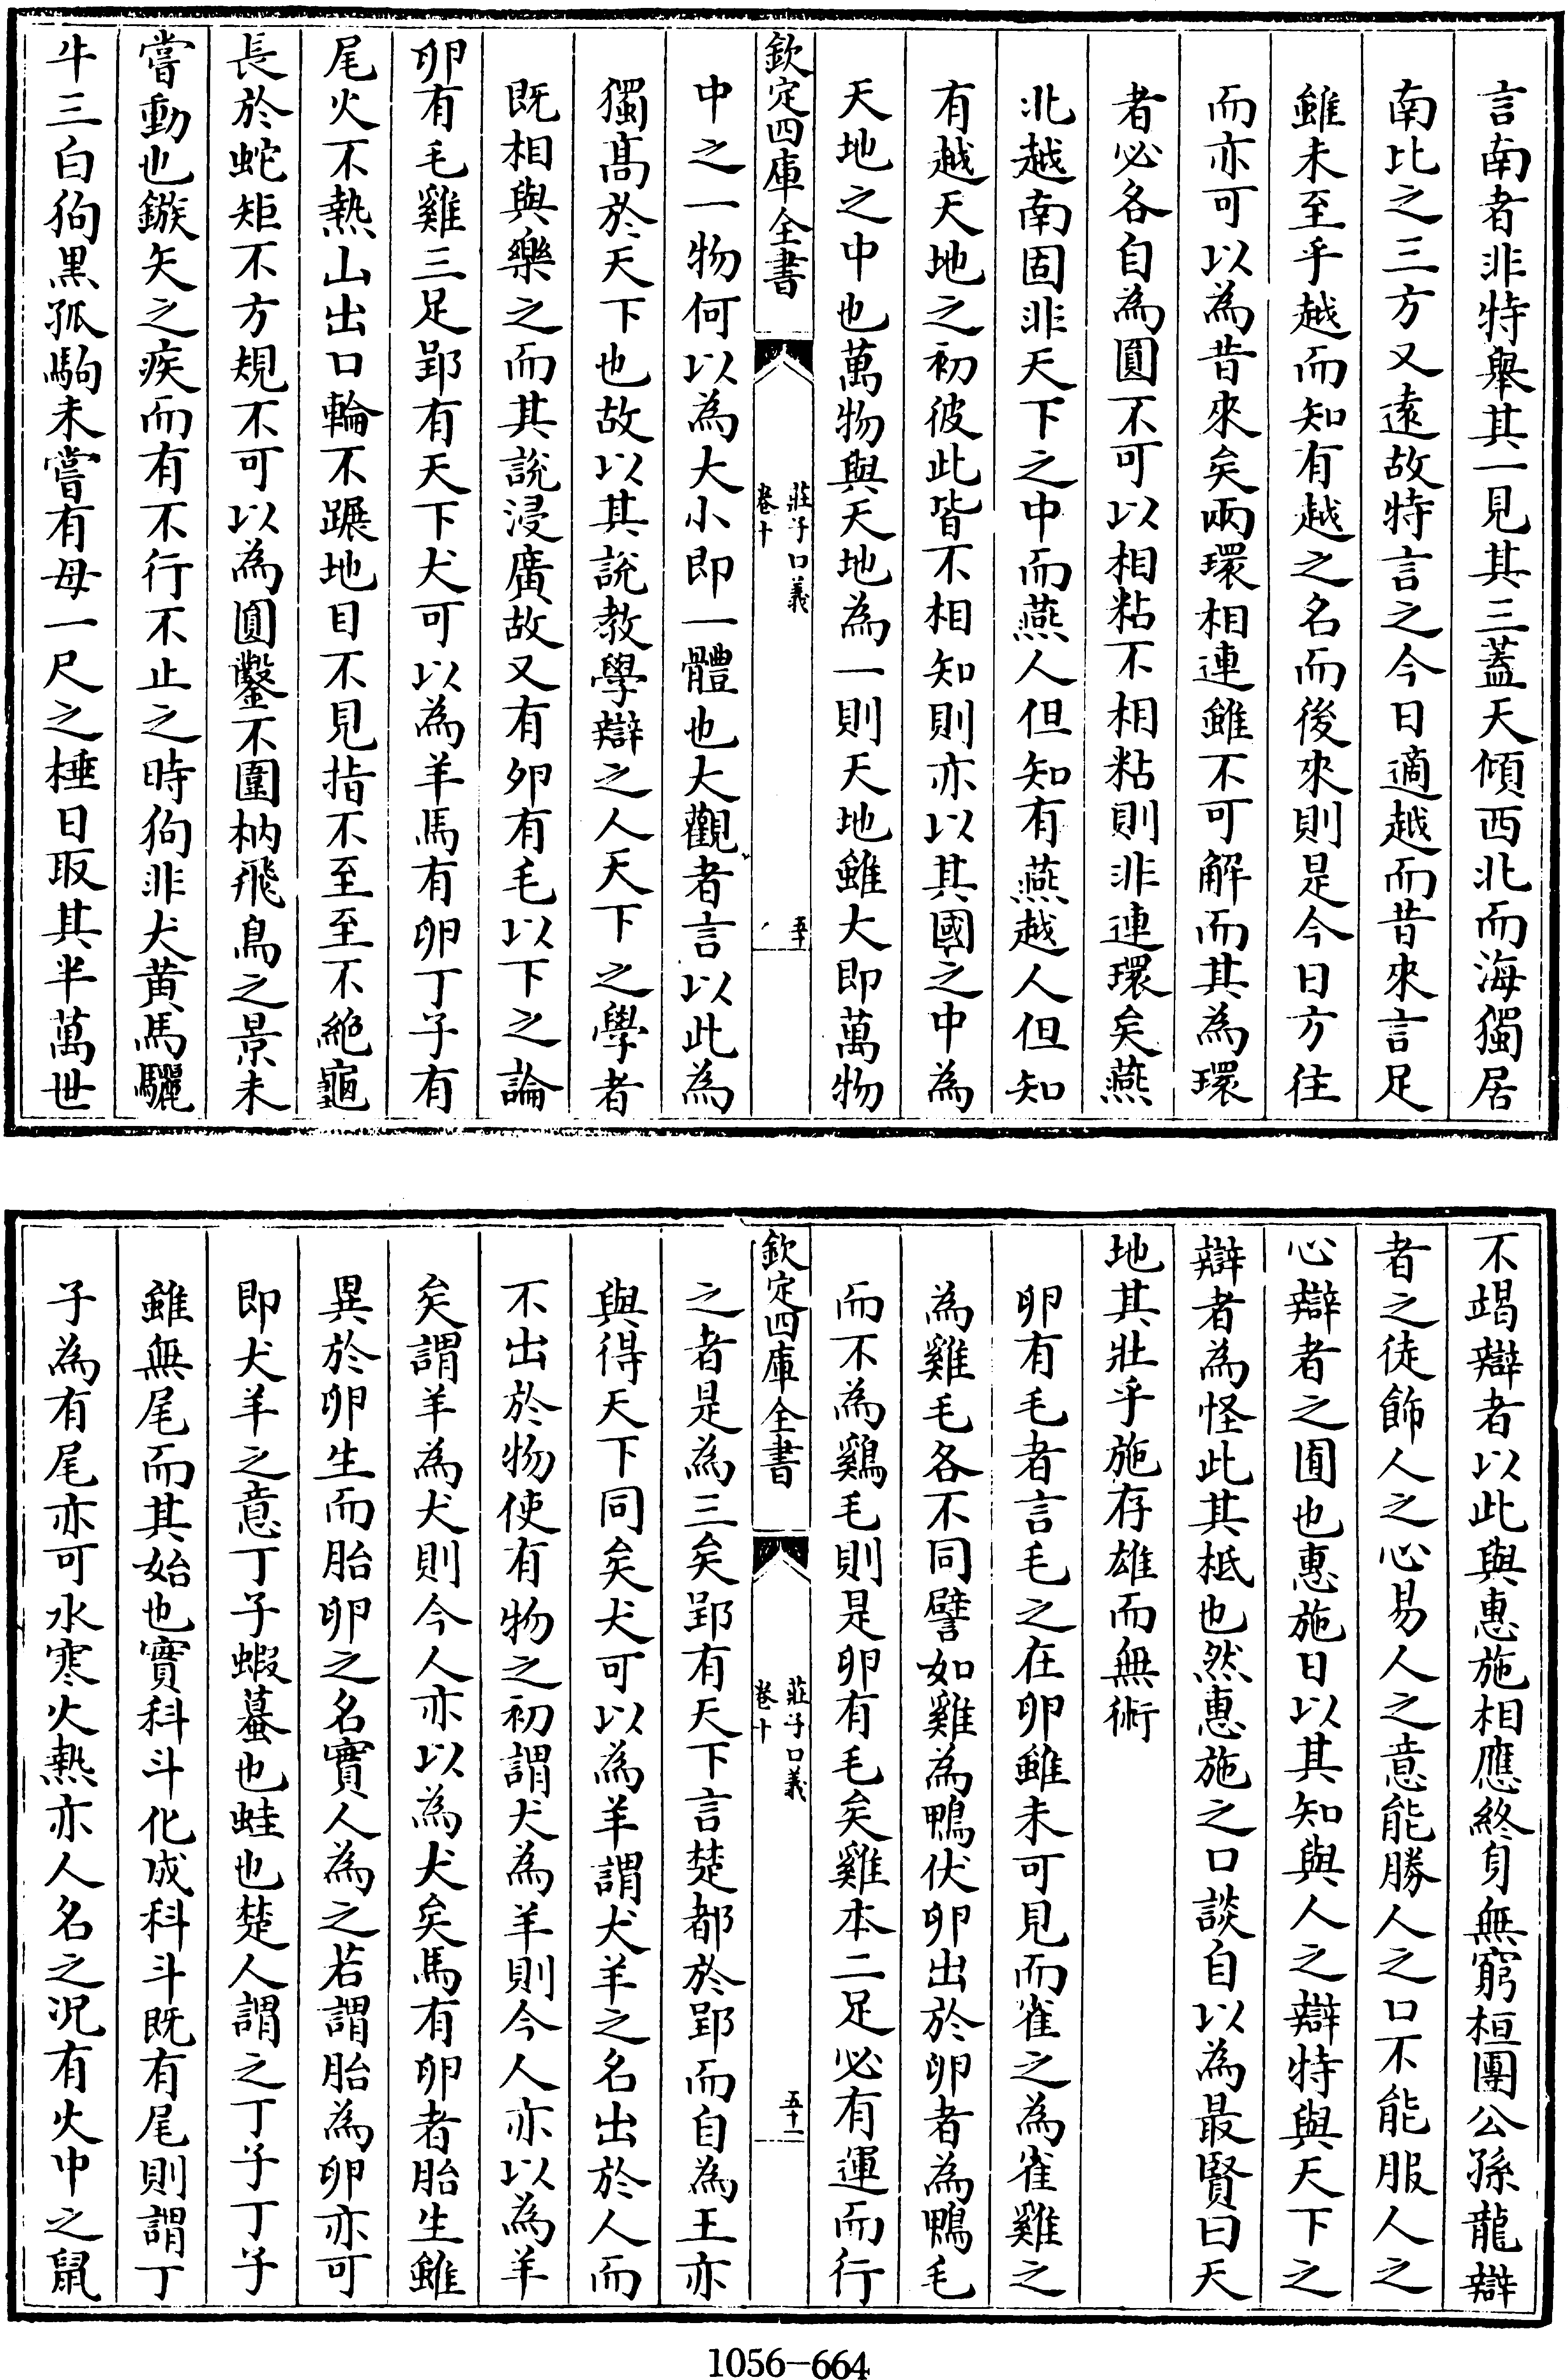 言南者非特舉其一見其三蓋天傾西北而海獨居
南比之三方又遠故特言之今日適越而昔來言足
雖未至乎越而知有越之名而後來則是今日方往
而亦可以為昔來矣兩環相連雖不可解而其為環
者必各自為圓不可以相粘不相粘則非連環矣燕
北越南固非天下之中而燕人但知有燕越人但知
有越天地之初彼此皆不相知則亦以其國之中為
天地之中也萬物與天地為一則天地雖大即萬物
欽定四庫全書
莊子口義
卷十
五十
中之一物何以為大小即一體也大觀者言以此為
獨高於天下也故以其說教學辯之人天下之學者
既相與樂之而其說浸廣故又有卵有毛以下之論
卵有毛雞三足郢有天下犬可以為羊馬有卵丁子有
尾火不熱山出口輪不蹍地目不見指不至至不絶龜
長於蛇矩不方規不可以為圓鑿不圍枘飛鳥之景未
嘗動也鏃矢之疾而有不行不止之時狗非犬黄馬驪
牛三白狗黑孤駒未嘗有母一尺之棰日取其半萬世
不竭辯者以此與惠施相應終身無窮桓團公孫龍辯
者之徒飾人之心易人之意能勝人之口不能服人之
心辯者之囿也惠施日以其知與人之辯特與天下之
辯者為怪此其柢也然惠施之口談自以為最賢曰天
地其壯乎施存雄而無術
卵有毛者言毛之在卵雖未可見而雀之為雀雞之
為雞毛各不同譬如雞為鴨伏卵出於卵者為鴨毛
而不為鷄毛則是卵有毛矣雞本二足必有運而行
欽定四庫全書
莊子口義
卷十
五十一
之者是為三矣郢有天下言楚都於郢而自為王亦
與得天下同矣犬可以為羊謂犬羊之名出於人而
不出於物使有物之初謂犬為羊則今人亦以為羊
矣謂羊為犬則今人亦以為犬矣馬有卵者胎生雖
異於卵生而胎卵之名實人為之若謂胎為卵亦可
即犬羊之意丁子蝦蟇也蛙也楚人謂之丁子丁子
雖無尾而其始也實科斗化成科斗既有尾則謂丁
子為有尾亦可水寒火熱亦人名之况有火中之鼠
1056-664